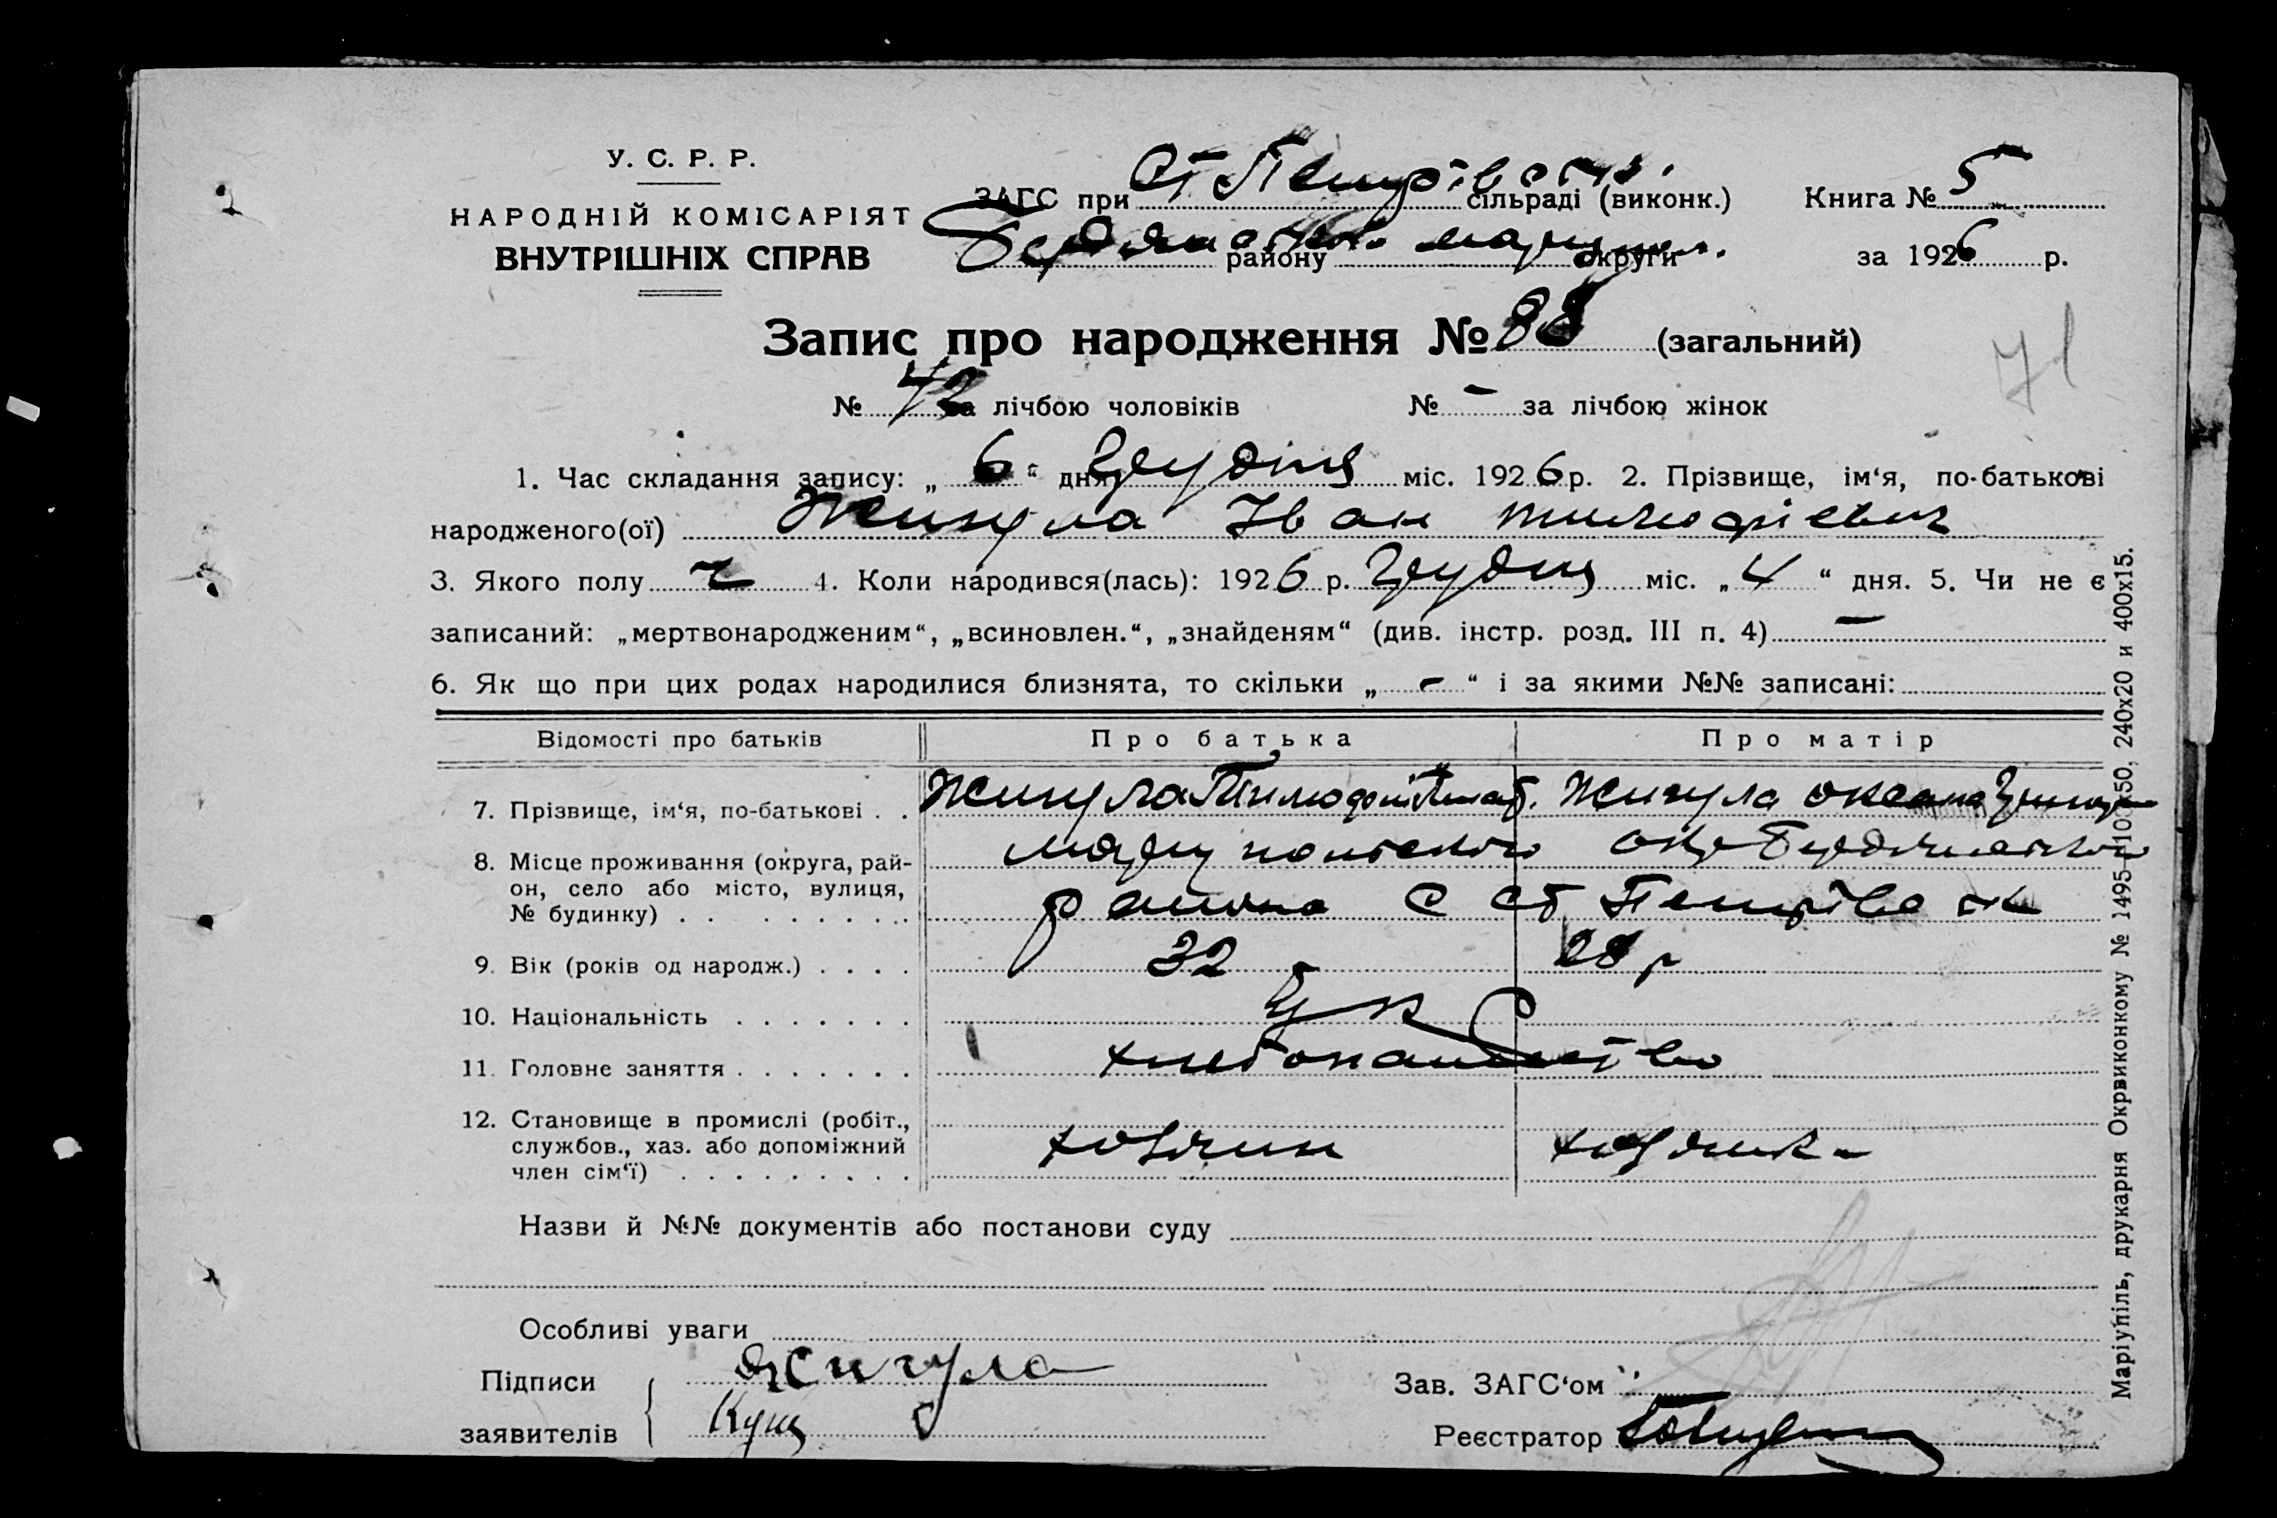 У. С. Р. Р.
НАРОДНІЙ КОМІСАРІЯТ
ВНУТРІШНІХ СПРАВ
ЗАГС при Ст Петрівськ. сільраді (виконк.)
Бердянського району маріуп. округи
Книга № 5
за 1926 р.
Запис про народження № 88 (загальний)
71
№ 42 за лічбою чоловіків № – за лічбою жінок
1. Час складання запису: „ 6 “ дня Грудня міс. 1926 р. 2. Прізвище, ім‘я, по-батькові
народженого(ої) Жигула Іван тимофієвич
3. Якого полу ч 4. Коли народився(лась): 1926 р. Грудня міс. „ 4 “ дня. 5. Чи не є
записаний: „мертвонародженим“, „всиновлен.“, „знайденям“ (див. інстр. розд. III п. 4) –
6. Як що при цих родах народилися близнята, то скільки „ – “ і за якими №№ записані:
Відомості про батьків Про батька Про матір
7. Прізвище, ім‘я, по-батькові . . Жигула Тимофій Жигула оксана
8. Місце проживання (округа, рай- маріупольского окр Бердянского
он, село або місто, вулиця, района с ст Петрівск
№ будинку) . . . . . . . . .
9. Вік (років од народж.) . . . . 32 28 р
10. Національність . . . . . . . Ук
11. Головне заняття . . . . . . . хлебопашество
12. Становище в промислі (робіт.,
службов., хаз. або допоміжний хозяин хозяика
член сім‘ї) . . . . . . . . .
Назви й №№ документів або постанови суду
Особливі уваги
Підписи Жигула
заявителів Кущ
Зав. ЗАГС‘ом
Реєстратор
Маріупіль, друкарня Окрвиконкому № 1495—10050, 240х20 и 400х15.